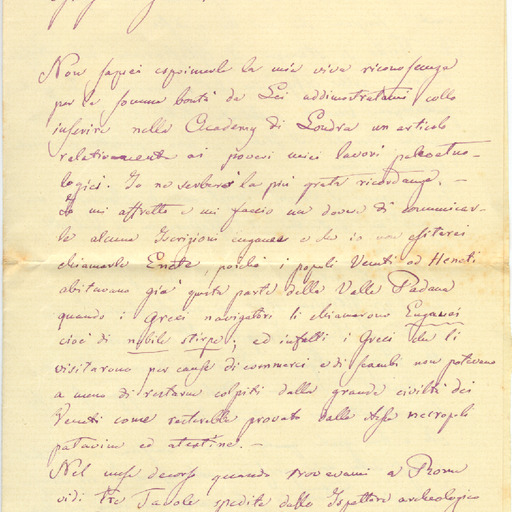 Non saprei esprimerle la mia viva riconoscenza
per la somma bontà da Lei addimostratami collo
inserire nella Academy di Londra un articolo
relativamente ai poveri miei lavori paleoetno-
logici. Io ne serberò la più grata ricordanza. —
Io mi affretto e mi faccio un dovere di comunicar-
le alcune Iscrizioni euganee e che io non esiterei
chiamarle Enete, poichè i popoli Veneti od Heneti
abitavano già questa parte della Valle Padana
quando i Greci navigatori li chiamarono Euganei
cioè di nobile stirpe; ed infatti i Greci che li
visitarono per causa di commerci e di scambi non potevano
a meno di restarne colpiti dalla grande civiltà dei
Veneti come resterebbe provato dalle necropoli
patavine ed atestine. —
Nel mese decorso quando trovavami a Roma
vidi tre Tavole spedite dallo Ispettore archeologico